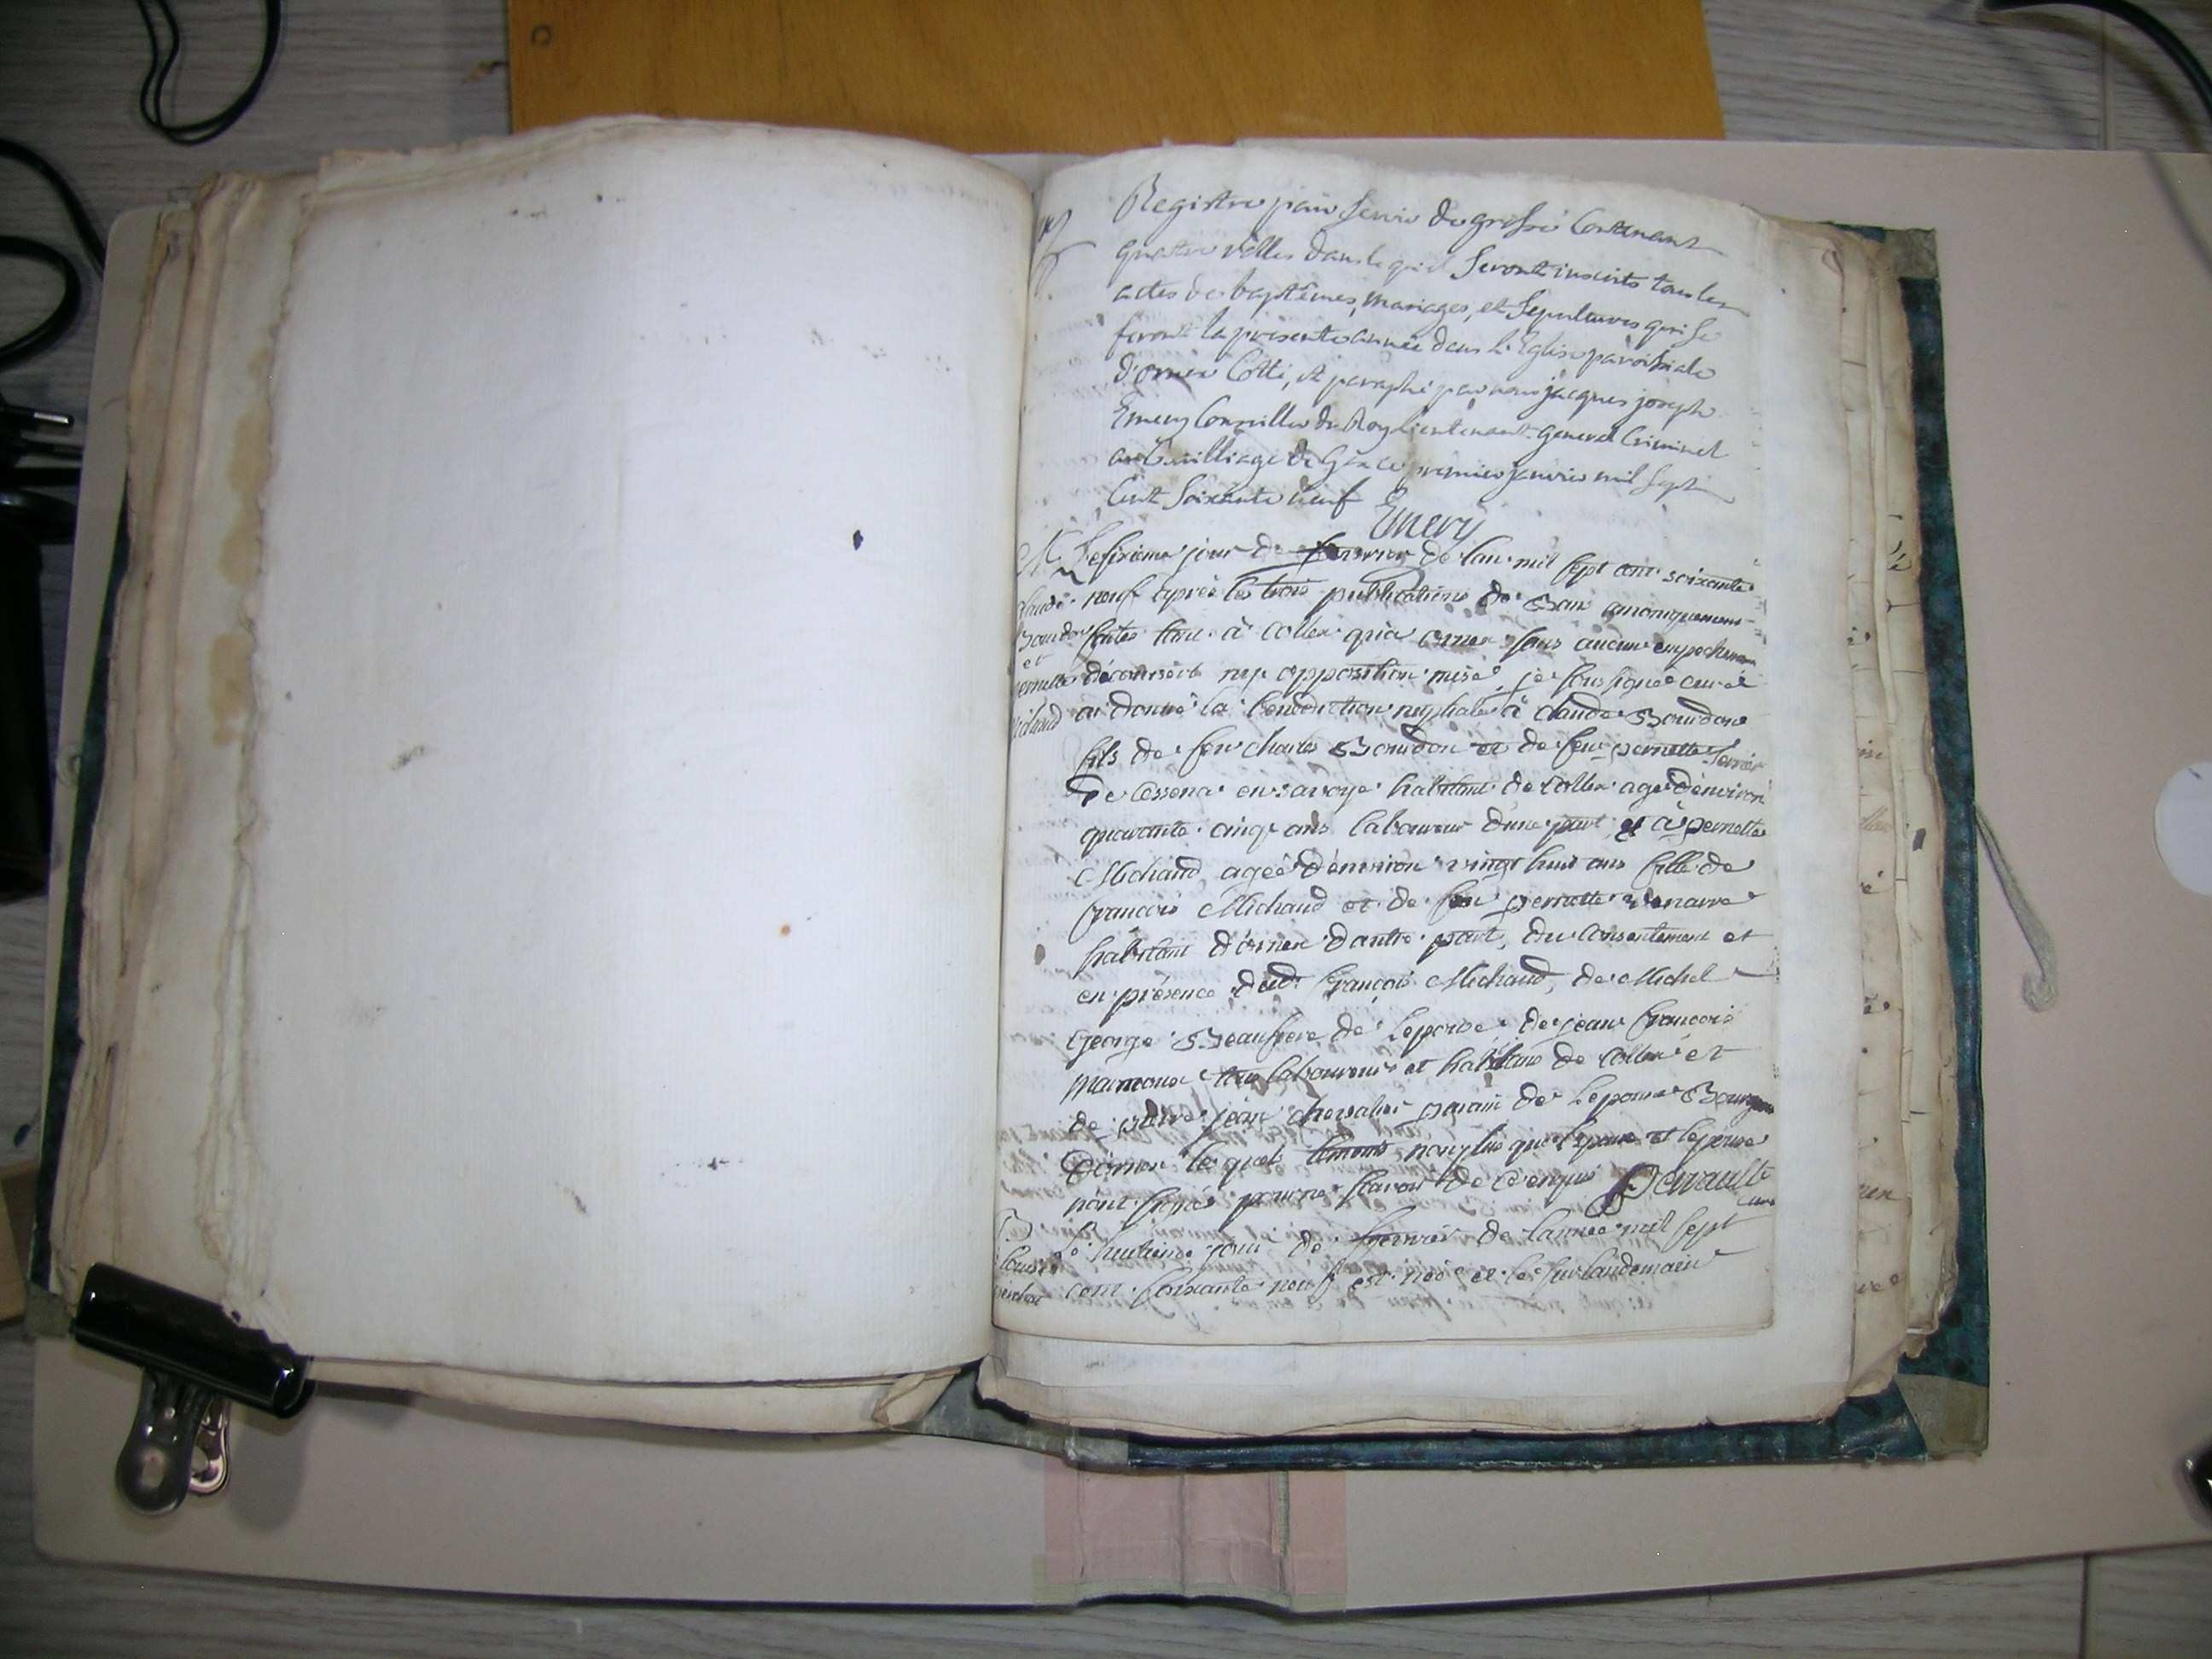 Registre pour servir de grosse Contenant
quatre rolles dans lequel Seront inscrits tous les
actes de baptêmes, mariages, et Sepultures qui se
feront la presente année dans l'Eglise paroissiale
d'ornex Cotté, et paraphé par nous jacques joseph
Emery Conseiller du Roy lieutenant general Criminel
au Bailliage de Gex ce premier janvier mil sept
Cent Soixante neuf Emery
M. Le sixieme jour de fevrier de lan mil sept cent soixante
claude neuf après les trois publications de Ban canoniquement
Boudon faites tant à collex qu'a ornex sans aucun empechement
et pernette découvert ny opposition mise, je soussigné curé
Michaud ai donné la benediction nuptiale à claude Boudon
fils de feu charles Boudon et de feu pernette
De en savoye habitant de collex agé d'environ
quarante cinq ans laboureur d'une part et à pernette
Michaud agée d'environ vingt huit ans fille de
françois Michaud et de feu pernette
habitant d'ornex d'autre part, du consentement et
en présence dud. françois Michaud, de Michel
George Beaufrere de l'epouse de jean françois
tous laboureurs et habitans de collex et
de pierre jean chevalier parain de l'epouse
d'ornex lesquels temoins non plus que l'epoux et l'epouse
n'ont signé pour ne savoir de ce enquis Devault
curé
B Le huitieme jour de fevrier de l'année mil sept
Louise cent soixante neuf est née et le surlandemain